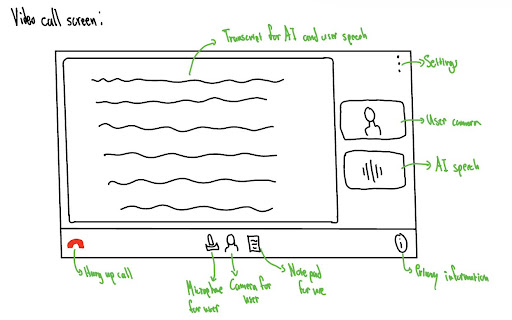 Video call screen:
Transcript for AI and user speech
Settings
User camera
AI speech
Hung up call
Microphone
for user
Camera for
user
Note pad
for use
Privacy information